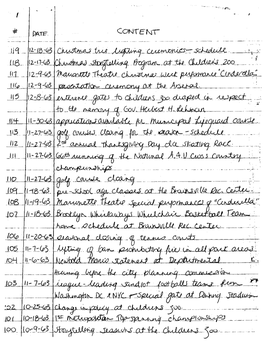 # DATE CONTENT
119 12-18-63 Christmas tree lighting ceremonies - schedule
118 12-17-63 Christmas Storytelling Program at the Childrens Zoo
117 12-9-63 Marionette Theatre Christmas week performance "Cinderella"
116 12-9-63 presentation ceremony at the Arsenal
115 12-8-63 entrance gates to childrens zoo draped in respect
to the memory of Gov. Herbert H. Lehman
114 11-30-63 applications available for Municipal Lifeguard course
113 11-27-63 golf courses closing for the season - schedule
112 11-27-63 2nd annual Thanksgiving Day Ice Skating Race
111 11-27-63 66th running of the National A.A.U Cross Country
championships
110 11-27-63 golf course closing
109 11-18-63 pre-school age classes at the Brownsville Rec. Center
108 11-19-63 Marionette Theatre special performances of "Cinderella"
107 11-18-63 Brooklyn Whirlaways Wheelchair Basketball Team
home schedule at Brownsville Rec Center
106 11-20-63 seasonal closing of tennis courts
105 11-7-63 lifting of ban prohibiting fires in all park areas
104 11-6-63 Newbold Morris statement at Departmental
hearing before the city planning commission
103 11-7-63 league leading football teams from
Washington DC & NYC - special gate at Downing Stadium
102 10-25-63 change in policy at childrens zoo
101 10-18-63 1st Metropolitan Top-spinning championships
100 10-9-63 storytelling season at the childrens zoo